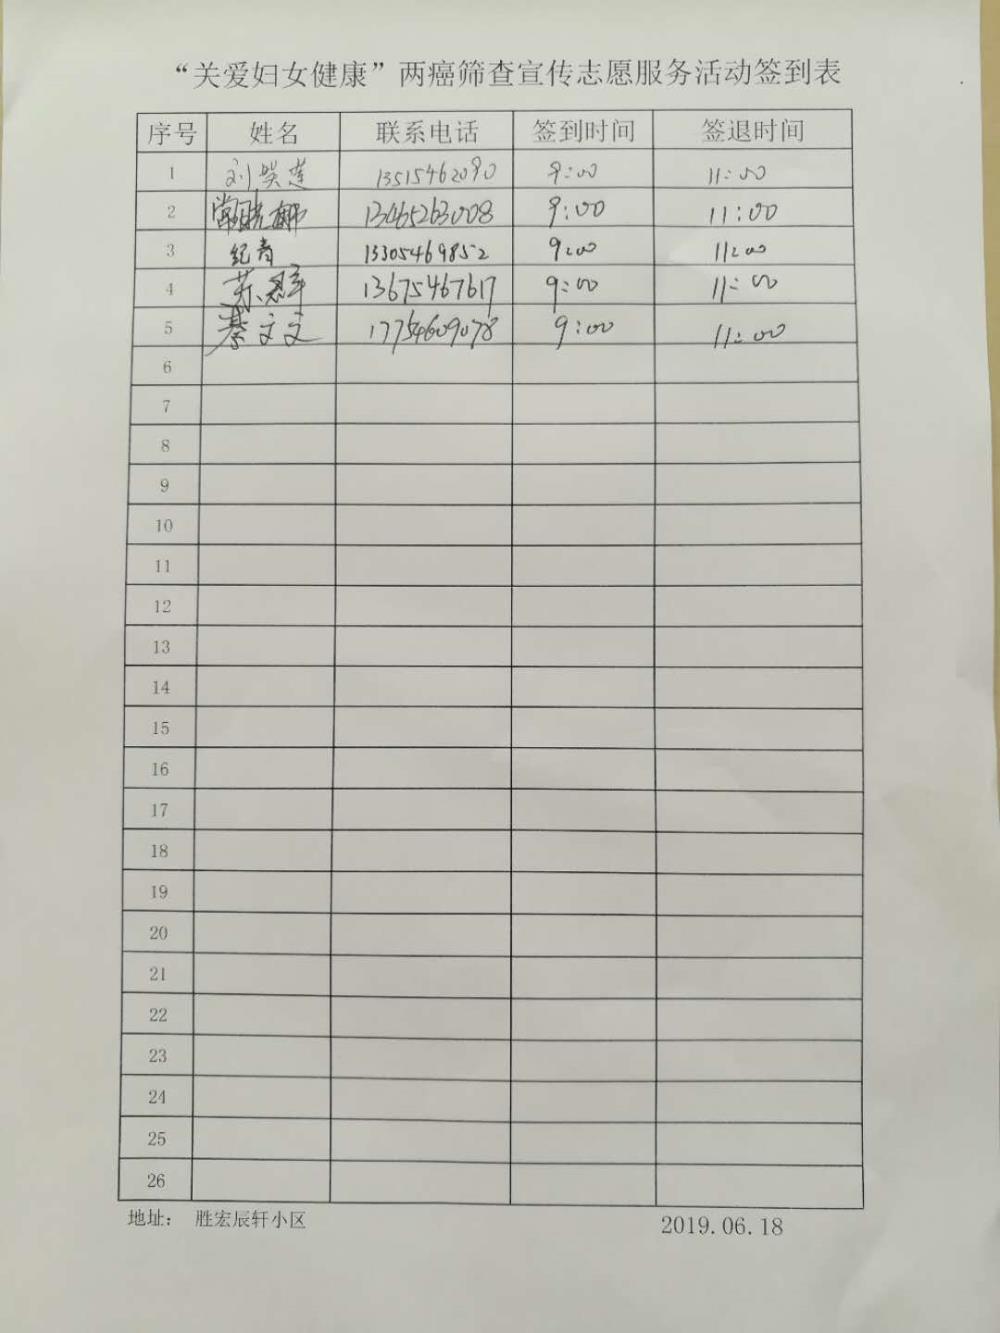 “关爱妇女健康”两癌筛查宣传志愿服务活动签到表
序号 姓名 联系电话 签到时间 签退时间
1 刘 莲 13515462090 9:00 11:00
2 常 娜 13465263008 9:00 11:00
3 纪青 13305469852 9:00 11:00
4 苏 13675467617 9:00 11:00
5 綦文文 17754609078 9:00 11:00
6
7
8
9
10
11
12
13
14
15
16
17
18
19
20
21
22
23
24
25
26
地址： 胜宏辰轩小区 2019.06.18